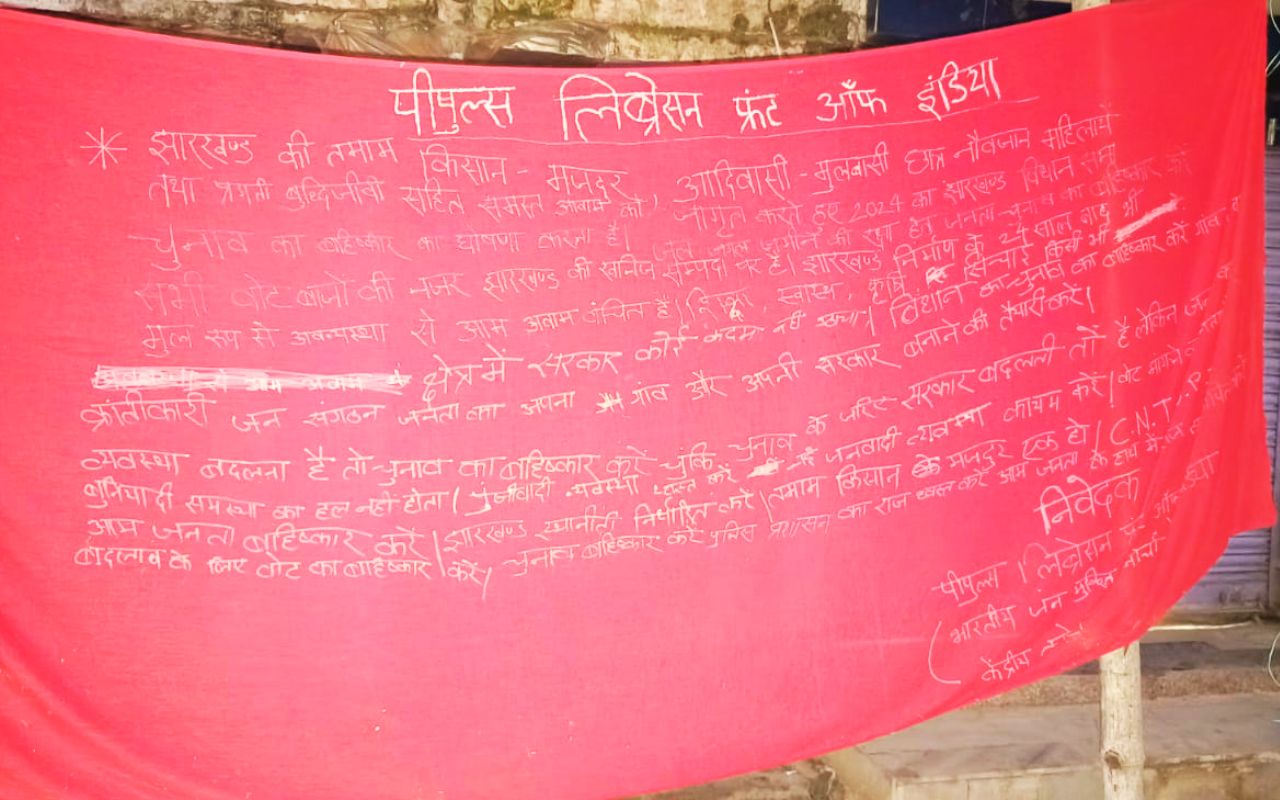 पीपुल्स लिब्रेसन फ्रंट ऑफ इंडिया
* झारखण्ड की तमाम किसान - मजदुर, आदिवासी - मुलवासी छात्र नौवजान महिलायें
तथा प्रगती बुद्धिजीवी सहित समस्त आवाम को जागृत करते हुए 2024 का झारखण्ड विधान सभा
चुनाव का बहिष्कार का घोषणा करता है। जल जंगल जमीन की रक्षा हेतु जनता चुनाव का बहिष्कार करें
सभी वोट बाजों की नजर झारखण्ड की खनिज सम्पदा पर है। झारखण्ड निर्माण के 24 साल बाद भी
मुल रूप से अवव्यस्था से आम अवाम वंचित है। स्वास्थ, कृषि सिन्चाई किसी भी
क्षेत्र में सरकार कोई कदम नहीं विधान का चुनाव का बहिष्कार करें गांव
क्रांतीकारी जन संगठन जनता का अपना गांव और अपनी सरकार बनाने की तैयारी करें।
व्यवस्था बदलना है तो चुनाव का बहिष्कार करें चुकि चुनाव के जरिए सरकार बदलती तो है लेकिन जन
बुनियादी समस्या का हल नही होता। पुंजीवादी व्यवस्था ध्वस्त करें नई जनवादी व्यवस्था कायम करें। वोट मांगने
आम जनता बहिष्कार करें। झारखण्ड स्थानीती निर्धारित करें। तमाम किसान मजदुर एक हो। C.N.T.
बादलाव के लिए वोट का बहिष्कार करें। चुनाव बहिष्कार करें पुलिस प्रशासन का राज ध्वस्त करें आम जनता के हाथ में
निवेदक
पीपुल्स लिब्रेसन फ्रंट ऑफ
(भारतीय जन मुक्ति मोर्चा
केंद्रीय